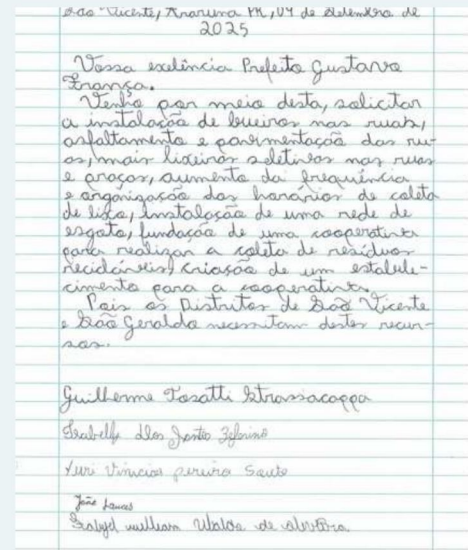 São Vicente, Araruna PR, 04 de Setembro de
2025
Vossa exelência Prefeito Gustavo
França.
Venho por meio desta, solicitar
a instalação de bueiros nas ruas,
asfaltamento e pavimentação das ru-
as, mais lixeiras seletivas nas ruas
e praças, aumento da frequência
e organização dos horários de coleta
de lixo, instalação de uma rede de
esgoto, fundação de uma cooperativa
para realizar a coleta de resíduos
recicláveis, criação de um estabele-
cimento para a cooperativa.
Pois os Distritos de São Vicente
e São Geraldo necessitam destes recur-
sos.
Guilherme Tosatti Strassacappa
dos Santos Zeferino
Yuri Vinicios pereira
João Lucas
de oliveira